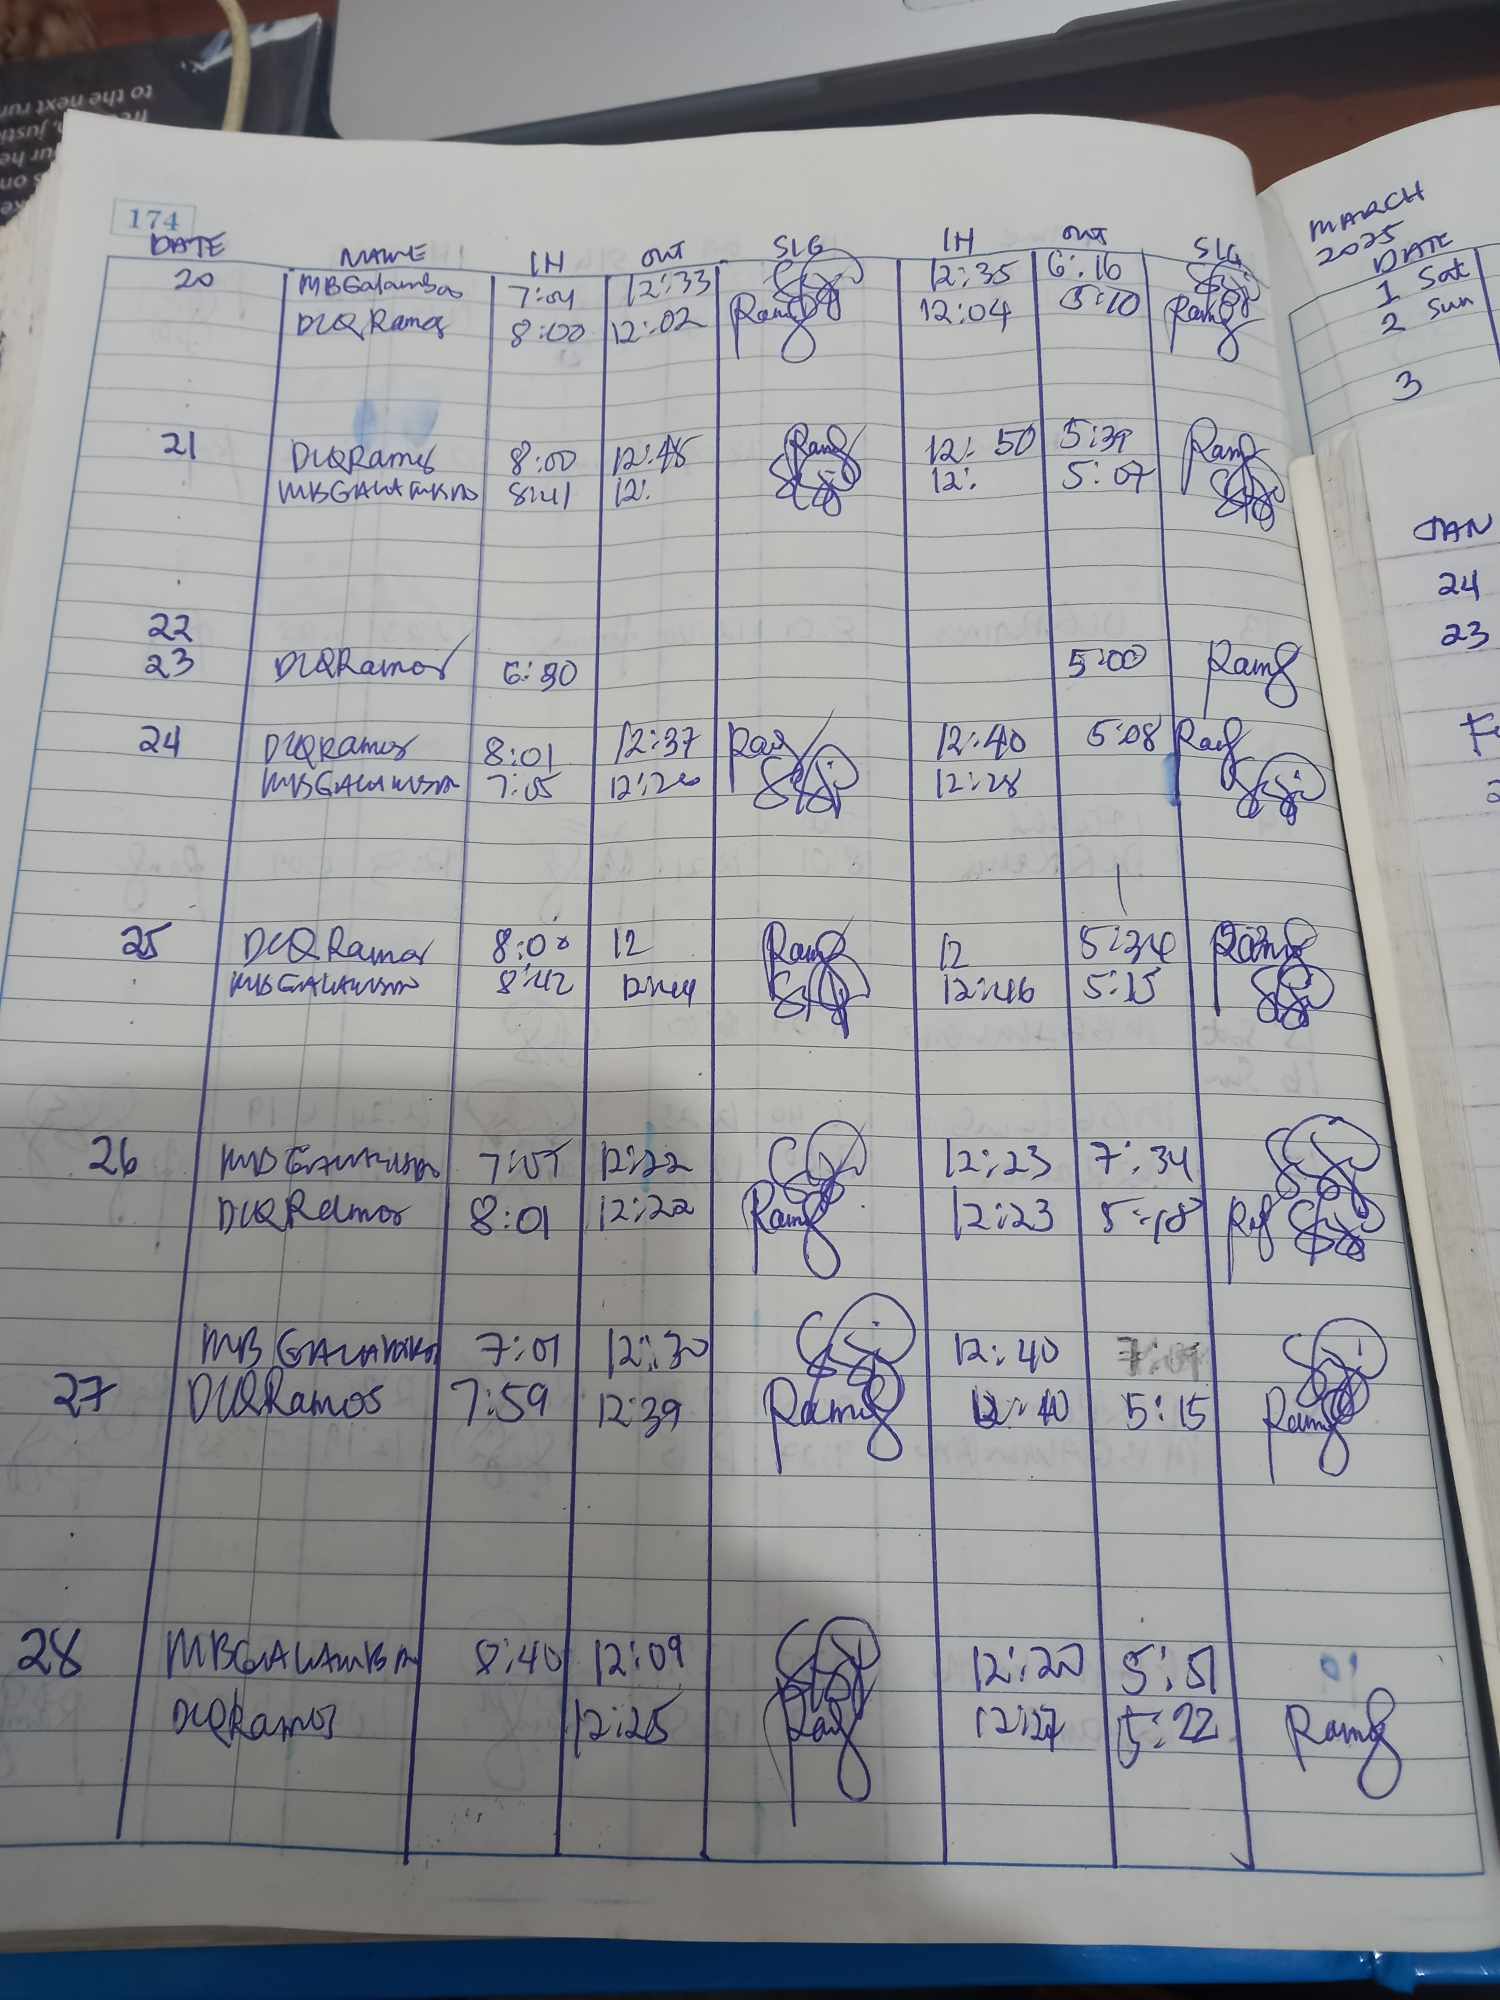 to the next run
174
DATE NAME IN OUT SIG IN OUT SIG
20 MBGalamba 7:04 12:33 12:35 6:16
DLQRamos 8:00 12:02 Ramos 12:04 5:10 Ramos
21 DLQRamos 8:00 12:48 Ramos 12:50 5:39 Ramos
MBGALAMBA 8:41 12: 12: 5:07
22
23 DLQRamos 6:30 5:00 Ramos
24 DLQRamos 8:01 12:37 12:40 5:08
MBGALAMBA 7:05 12:26 12:28
25 DLQRamos 12 Ramos 12 5:34 Ramos
MBGALAMBA 8:42 12:44 12:46 5:15
26 MBGALAMBA 7:05 12:22 12:23 7:34
DLQRamos 8:01 12:22 Ramos 12:23 5:18
MBGALAMBA 7:01 12:30 12:40
27 DLQRamos 7:59 12:39 Ramos 12:40 5:15 Ramos
28 MBGALAMBA 8:40 12:09 12:20 5:51
DLQRamos 12:25 12:27 5:22 Ramos
MARCH
2025
DATE
1 Sat
2 Sun
3
JAN
24
23